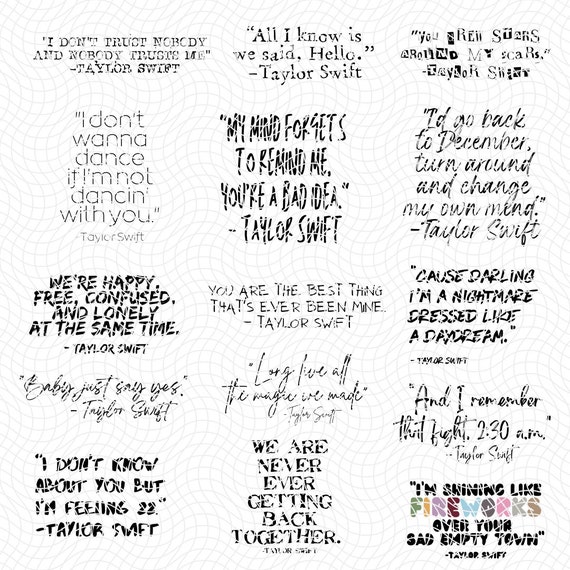 "I DON'T TRUST NOBODY
AND NOBODY TRUSTS ME"
-TAYLOR SWIFT
"All I know is
we said, Hello."
-Taylor Swift
"YOU DREW STARS
AROUND MY SCARS."
-TAYLOR SWIFT
"I don't
wanna
dance
if I'm not
dancin'
with you."
- Taylor Swift
"MY MIND FORGETS
TO REMIND ME,
YOU'RE A BAD IDEA."
- TAYLOR SWIFT
"I'd go back
to December,
turn around
and change
my own mind."
-Taylor Swift
WE'RE HAPPY,
FREE, CONFUSED,
AND LONELY
AT THE SAME TIME.
- TAYLOR SWIFT
YOU ARE THE BEST THING
THAT'S EVER BEEN MINE.
- TAYLOR SWIFT
"CAUSE DARLING
I'M A NIGHTMARE
DRESSED LIKE
A DAYDREAM."
- TAYLOR SWIFT
"Baby just say yes."
- Taylor Swift
"Long live all
the magic we made"
- Taylor Swift
"And I remember
that fight, 2:30 a.m."
-- Taylor Swift
"I DON'T KNOW
ABOUT YOU BUT
I'M FEELING 22."
-TAYLOR SWIFT
WE ARE
NEVER
EVER
GETTING
BACK
TOGETHER.
-TAYLOR SWIFT
"I'M SHINING LIKE
FIREWORKS
OVER YOUR
SAD EMPTY TOWN"
-TAYLOR SWIFT